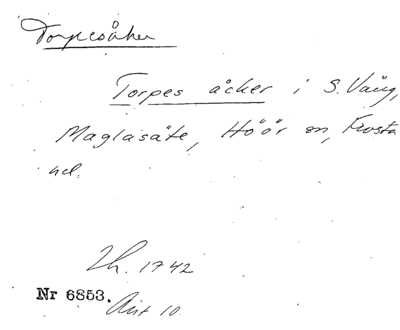 Torpesåker
Torpes åcker i S. Vång,
Maglasäte, Höör sn, Frosta
hd.
Lh. 1742
Nr 6853.
Akt 10.